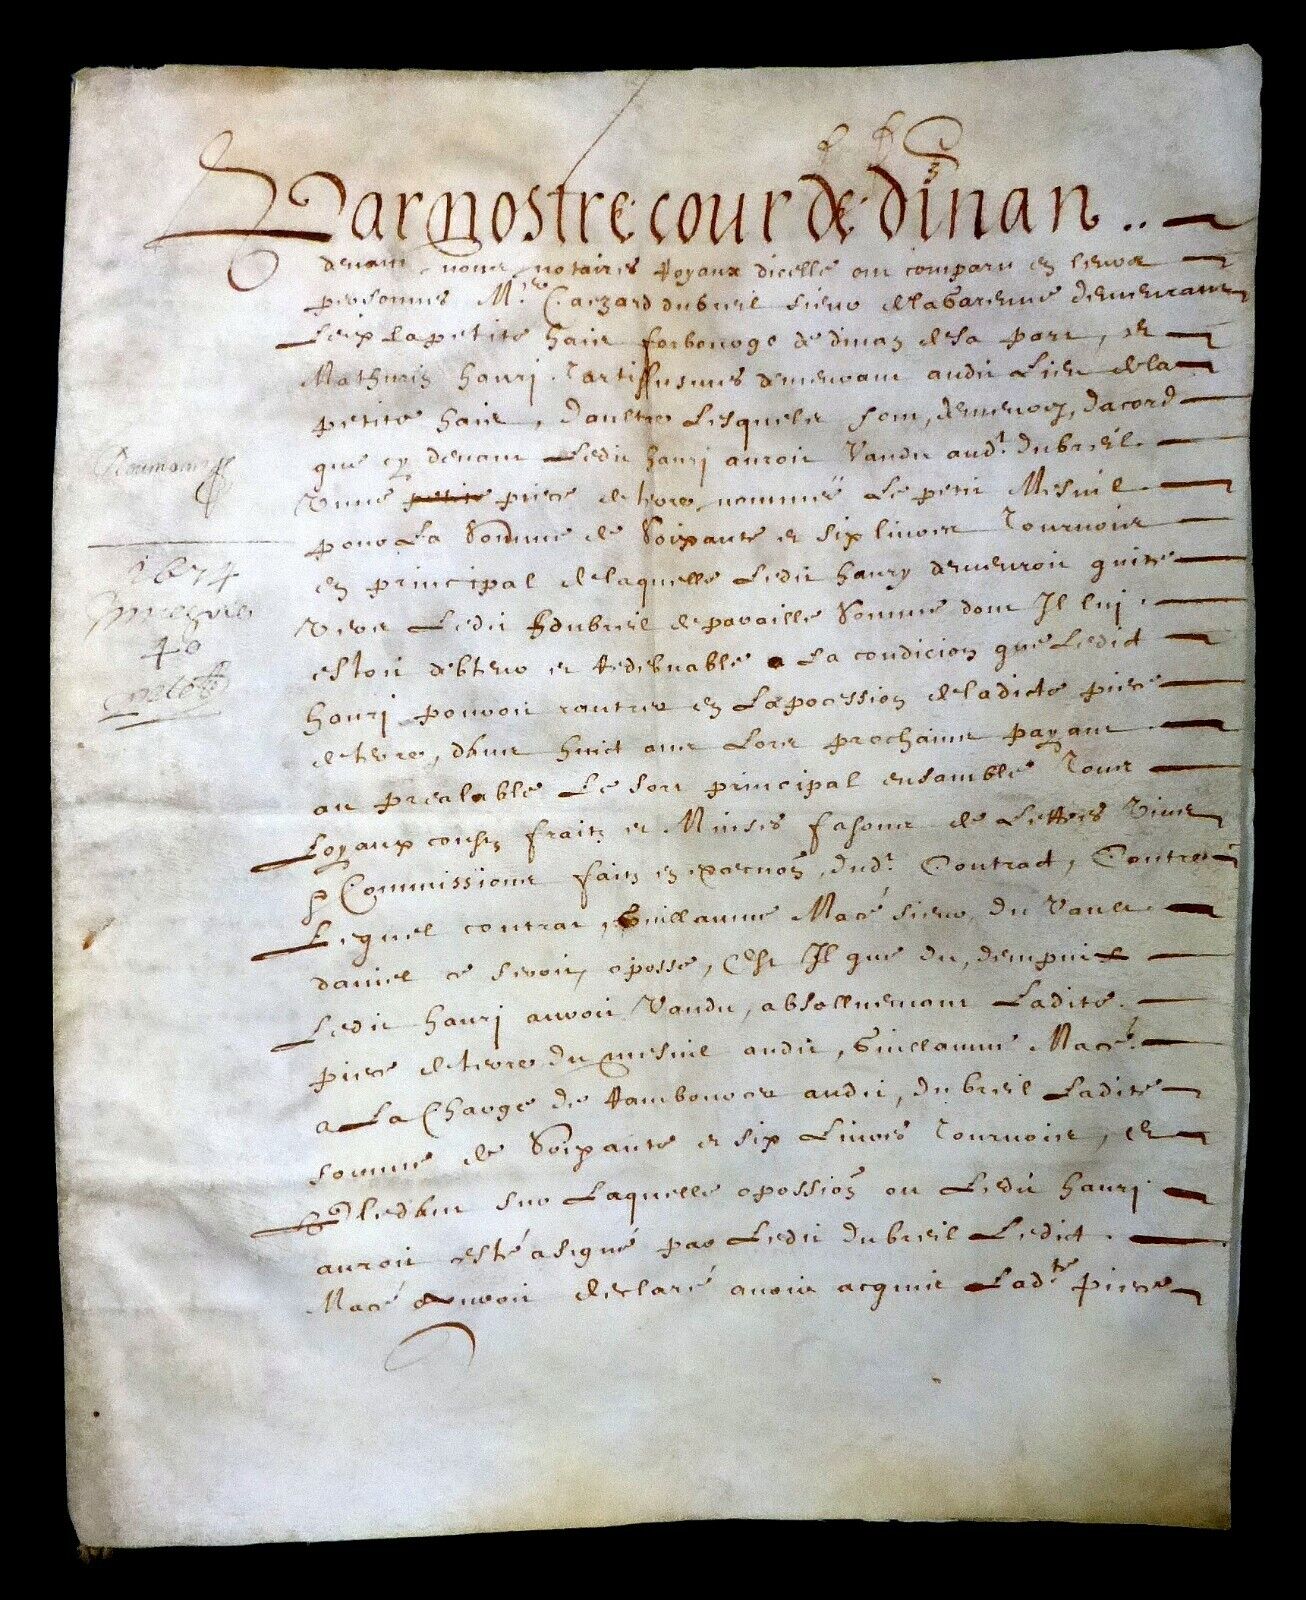 Par nostre cour de dinan
devant nous notaires Royaux dicelle ont comparu en leurs
personnes Mre dubreil sieur de la Garenne demeurant
la petite haie forbourgs de dinan de sa part, et
Mathurin hanry demeurant audit Lieu de la
petite haie, daultre Lesquels sont, demeurez, dacord
que cy devant Ledit hanry auroit Vandu audt dubreil
Vnne petite piece de terre nommée Le petit Mesnil
pour La Somme de Soixante et six livres Tournois
en principal de laquelle Ledit hanry demeuroit quite
Vers Ledit dubreil de pareille Somme dont Il lui
estoit debteur et Redevable a La condicion que Ledict
hanry pouroit rantrer en La pocession de ladicte piece
de terre, dans huict ans Lors prochains payant
au prealable Le sort principal ensamble Tous
Loyaux couts fraitz et Minses fasons de Lettres Vins
Commissions faitz en dudt Contract, Contre
Lequel contrat, Guillaume Macé sieur du Vault
daniel ce seroit, oposse, Est Il que du, dempuis
Ledit hanry auroit Vandu, absolluemant Ladite
piece de terre du mesnil audit, Guillaume Macé
a La Charge de Rambourcer audit, dubreil Ladite
somme de Soixante et six Livres Tournois, et
sur Laquelle opossion ou Ledit hanry
auroit esté asigné par Ledit dubreil Ledict
Macé auroit declaré avoir acquis Ladte piece
1674
40